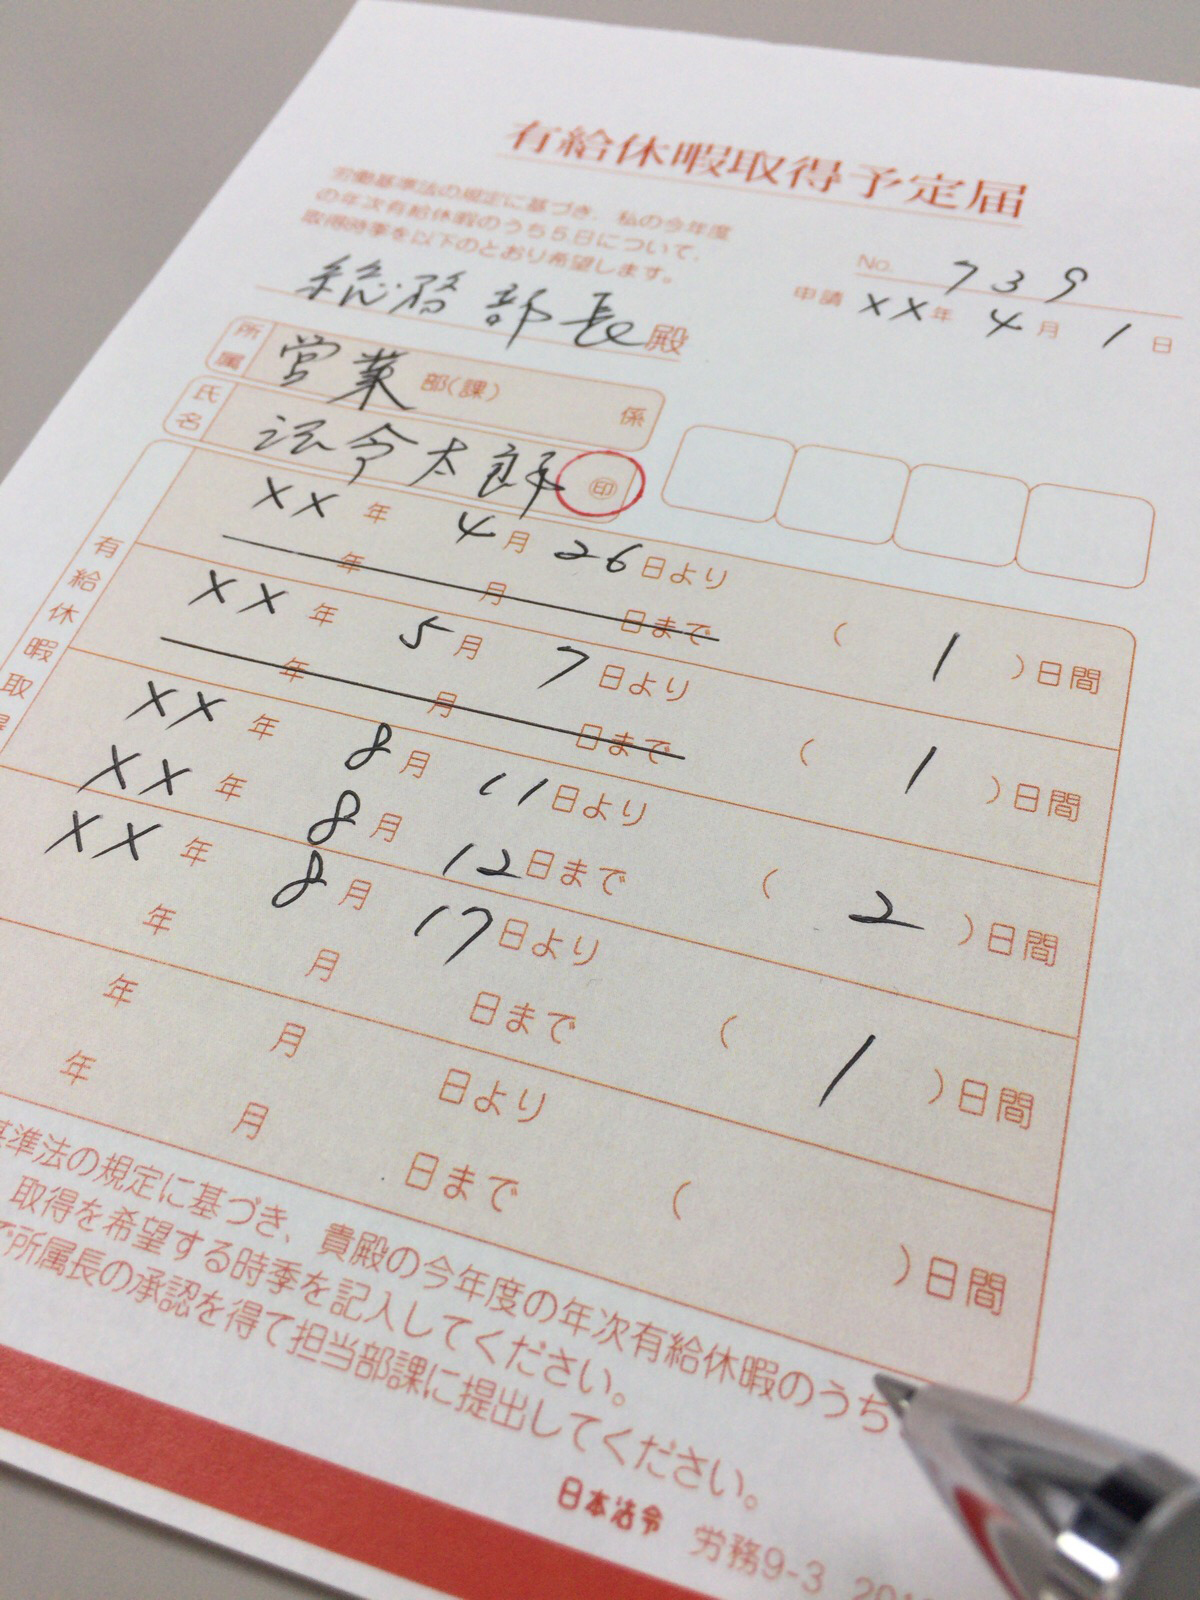 有給休暇取得予定届
労働基準法の規定に基づき、私の今年度
の年次有給休暇のうち5日について、
取得時季を以下のとおり希望します。
No. 739
申請 XX年 4月 1日
総務部長殿
所属 営業 部(課) 係
氏名 法令太郎 印
有給休暇取
XX年 4月 26日より
年 月 日まで ( 1 )日間
XX年 5月 7日より
年 月 日まで ( 1 )日間
XX年 8月 11日より
XX年 8月 12日まで ( 2 )日間
XX年 8月 17日より
年 月 日まで ( 1 )日間
年 月 日より
年 月 日まで ( )日間
基準法の規定に基づき、貴殿の今年度の年次有給休暇のうち
取得を希望する時季を記入してください。
所属長の承認を得て担当部課に提出してください。
日本法令 労務9-3